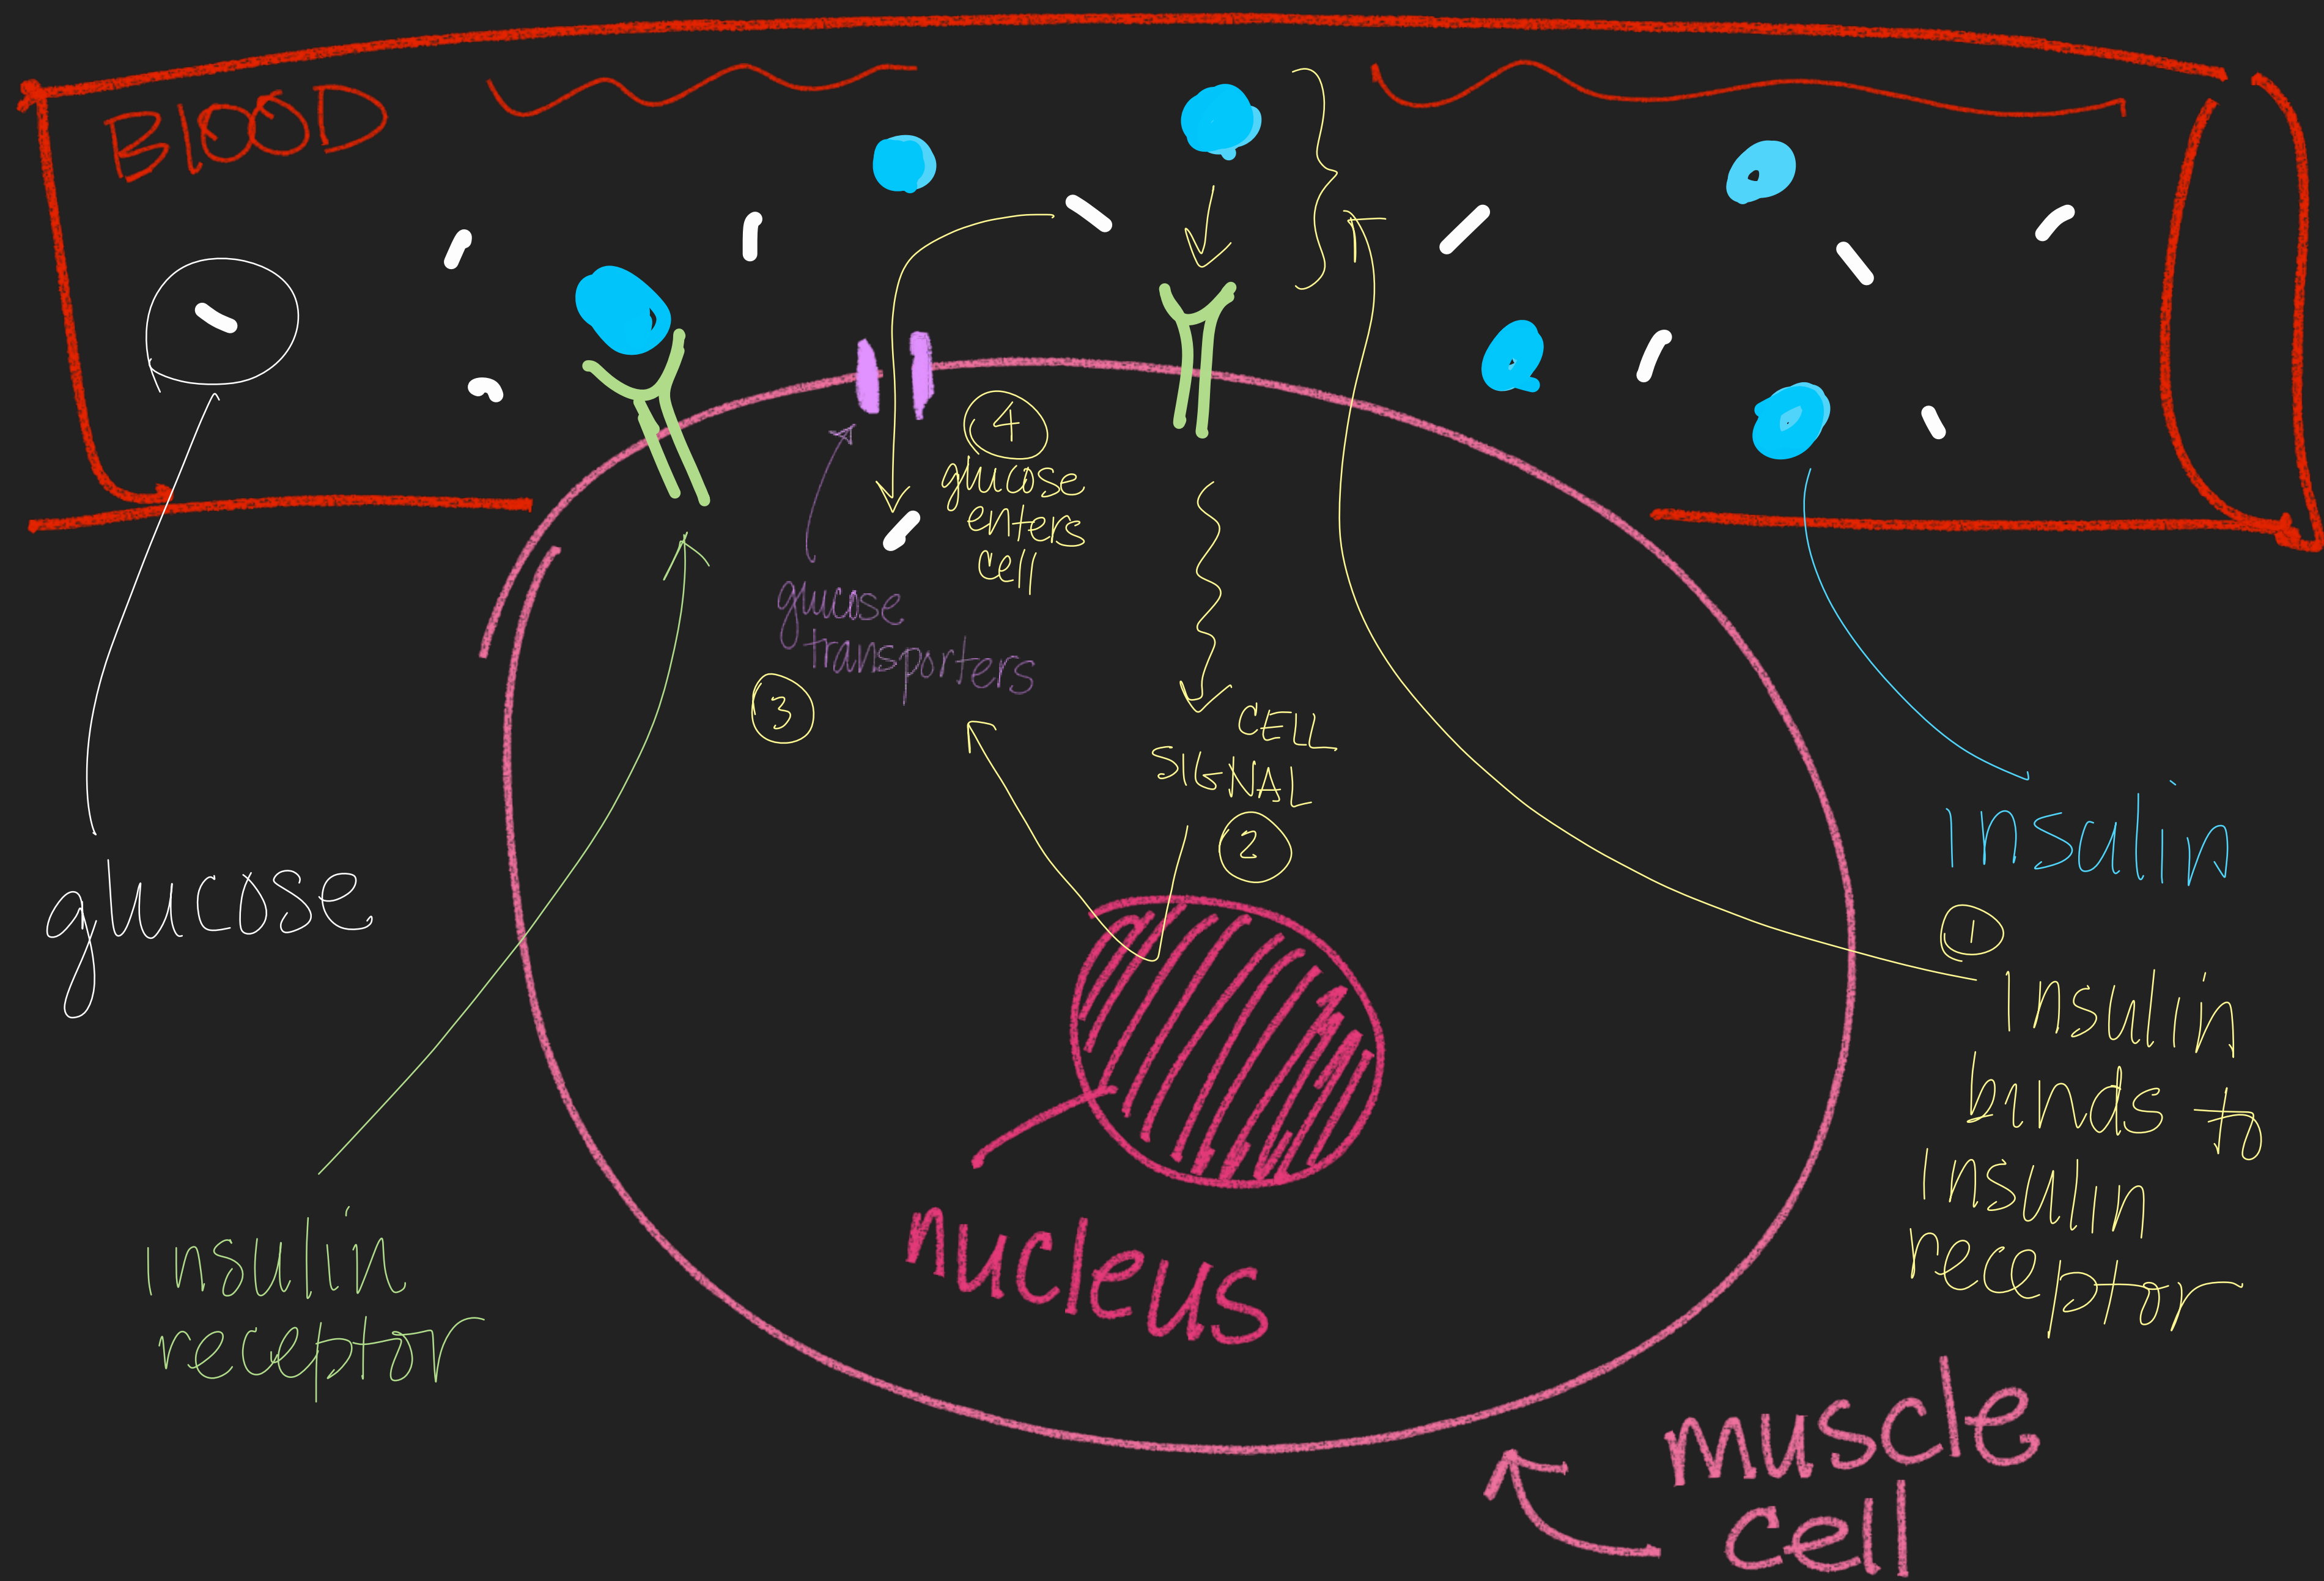 BLOOD
4
glucose
enters
cell
glucose
transporters
3
CELL
SIGNAL
2
insulin
1
insulin
binds to
insulin
receptor
glucose
insulin
receptor
nucleus
muscle
cell